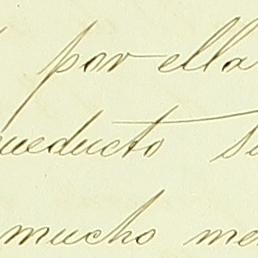 por ella
ueducto
mucho me